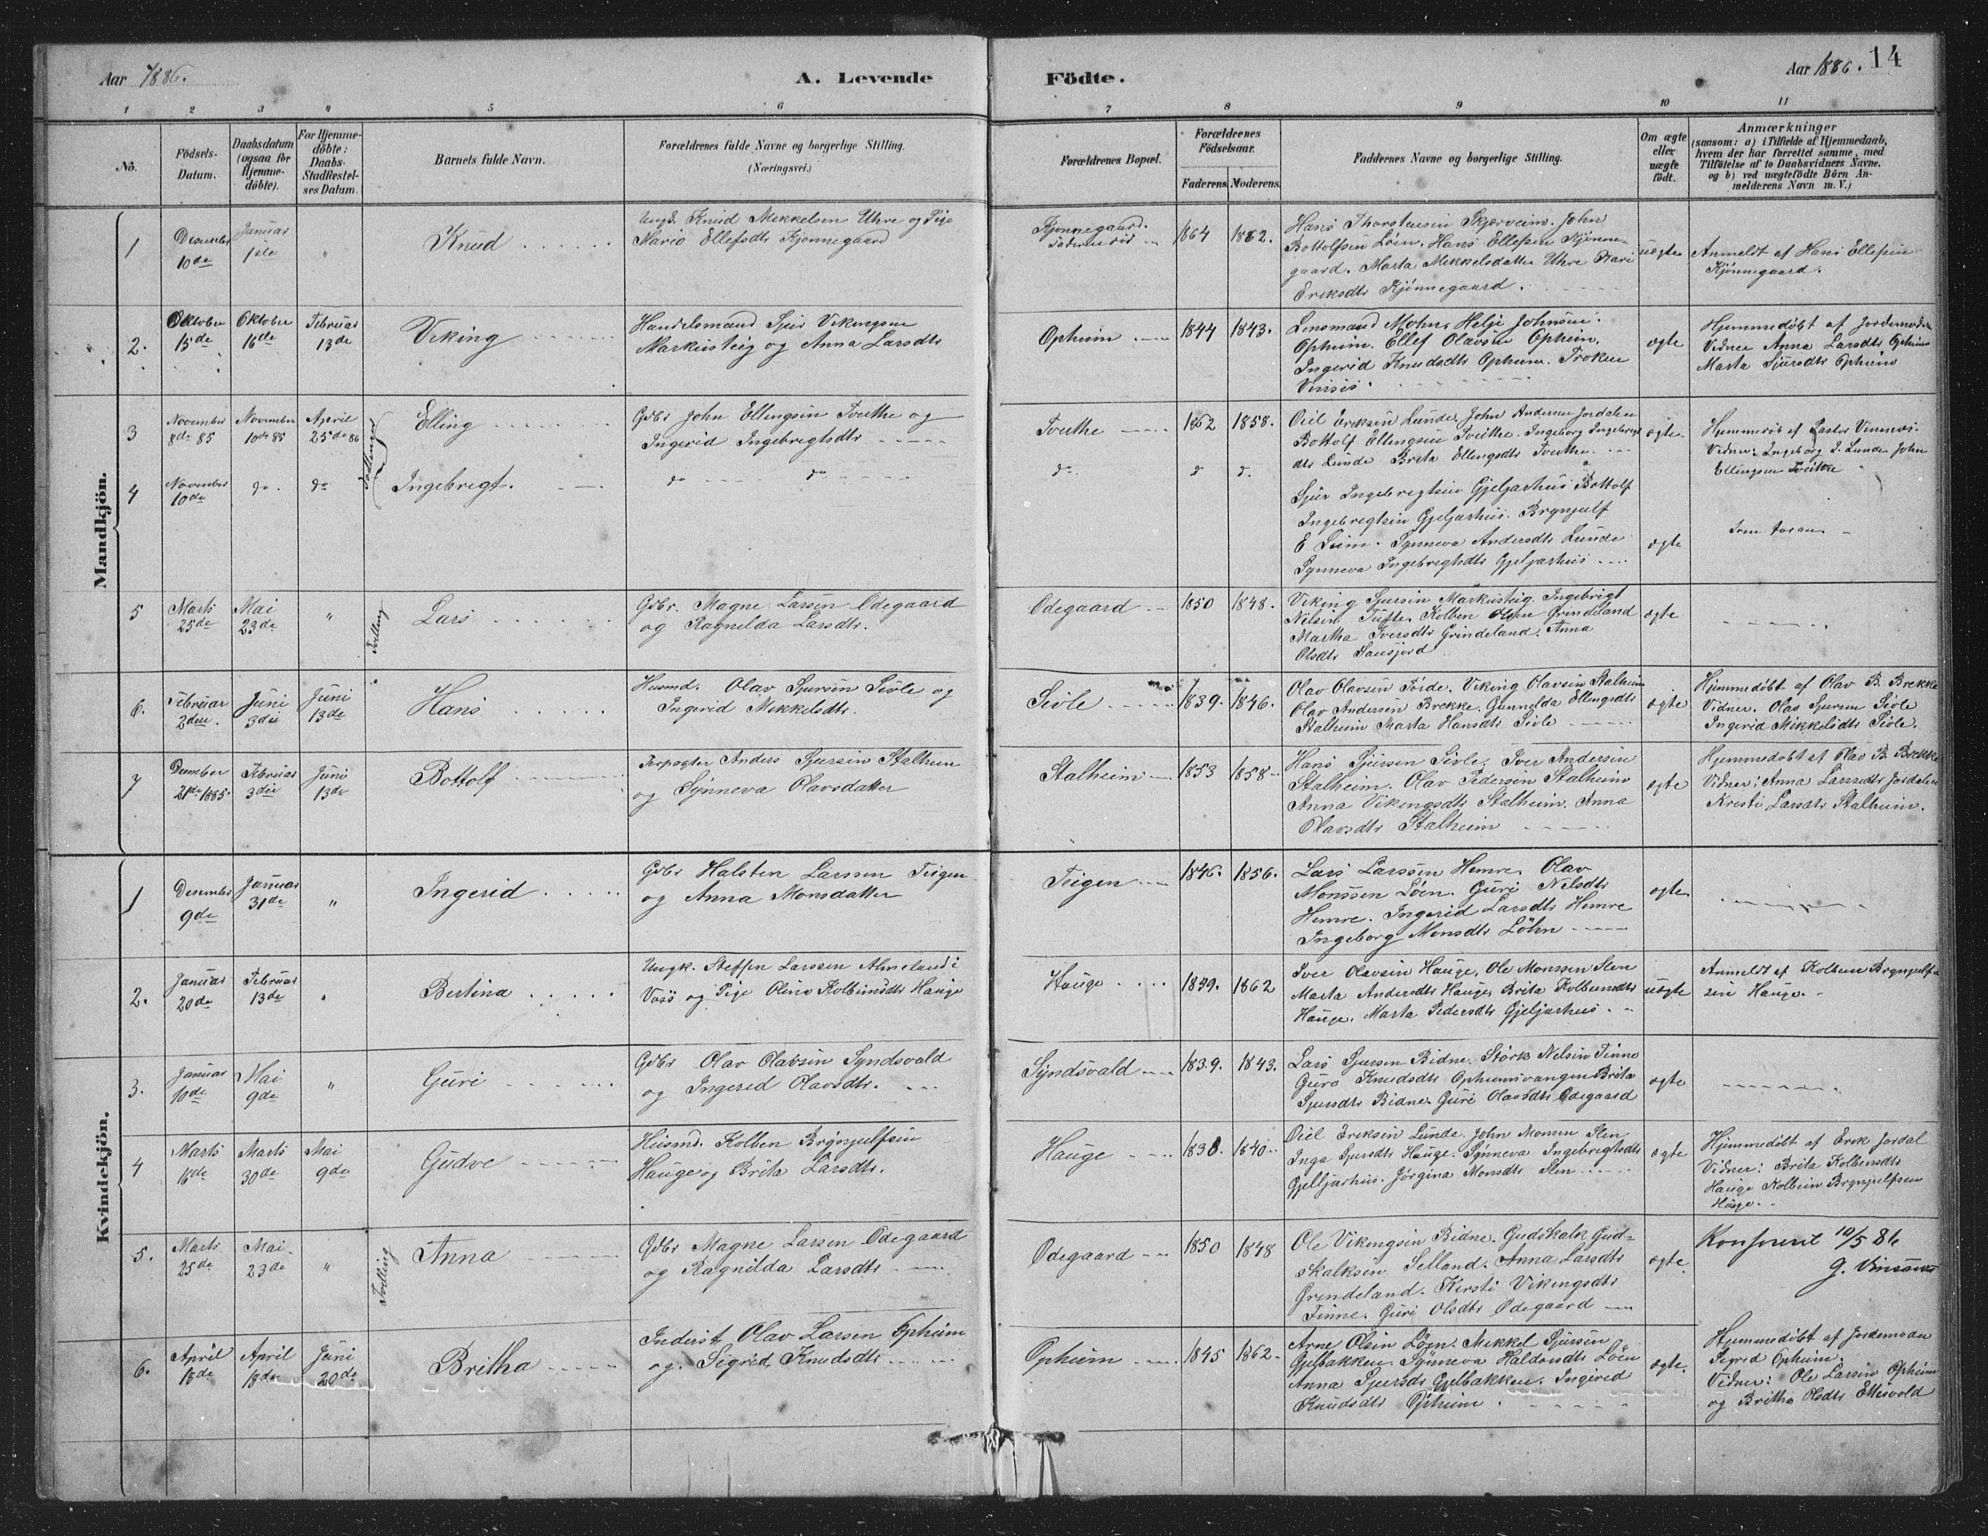 Aar 1886.
A. Levende Födte.
Aar 1886.
14
1 2 3 4 5 6 7 8 9 10 11
No.
Födsels-
Datum.
Daabsdatum
(ogsaa for
Hjemme-
döbte).
For Hjemme-
döbte:
Daabs-
Stadfæstel-
ses Datum.
Barnets fulde Navn.
Forældrenes fulde Navne og borgerlige Stilling.
(Næringsvei.)
Forældrenes Bopæl.
Forældrenes
Födselsaar.
Faderens. Moderens.
Faddernes Navne og borgerlige Stilling.
Om ægte
eller
uægte
födt.
Anmærkninger
(saasom: a) i Tilfælde af Hjemmedaab,
hvem der har forrettet samme, med
Tilföielse af to Daabsvidners Navne,
og b) ved uægtefödte Börn An-
melderens Navn m. V.)
Mandkjön.
1
Desember
10de
Januar
1ste
"
Knud
Ungk. Knud Mikkelsen Uhre og Pige
Mario Ellefsdtr Kjönnegaard
Kjönnegaard.
1864
1862.
Hans Thorsteinsen Skjerveim. John
Bottolfsen Löen. Hans Ellefsen Kjönne-
gaard. Marta Mikkelsdatter Uhre Kari
Eriksdtr Kjönnegaard.
uægte
Anmeldt af Hans Ellefsen
Kjönnegaard.
2.
Oktober
15de
Oktober
16de
Februar
13de
Viking
Handelsmand Sjur Vikingsen
Markusteig og Anna Larsdtr
Opheim
1844
1843.
Lensmand Mohn. Helje Johnsen
Opheim. Ellef Olavsen Opheim.
Ingerid Knudsdtr Opheim. Froken
Vinsnes.
ægte
Hjemmedöbt af Jordemoder
Vidner Anna Larsdtr Opheim
Marta Sjursdtr Opheim
3
November
8de 85
November
10de 85
April
25de 86
Tvillinger
Elling
Gdbr John Ellingsen Tveithe og
Ingerid Ingebrigtsdtr
Tveithe
1862
1858.
Oiel Eriksen Lunde John Andersen Jordalen
Bottolf Ellingsen Tveithe. Ingeborg Ingebrigt
dtr Lunde Brita Ellingsdtr Tveithe.
ægte
Hjemmedöb af Pastor Vinsnes.
Vidner. Ingeborg I. Lunde John
Ellingsen Tveithe
4
November
10de
do.
do
Ingebrigt.
do do
do d d.
Sjur Ingebrigtsen Gjeljarhus Bottolf
Ingebrigtsen Gjeljarhus. Brynjulf
E Seim. Synneva Andersdtr Lunde
Synneva Ingebrigtsdtr Gjeljarhus
ægte
Som foran
5
Marts
25de
Mai
23de
"
Tvilling
Lars
Gdbr. Magne Larsen Ödegaard
og Ragnilda Larsdtr.
Ödegaard
1850
1848.
Viking Sjursen Markusteig. Ingebrigt
Nilsen Tufte. Kolben Olsen Grindeland
Martha Iversdtr Grindeland. Anna
Olsdtr Haugjord
ægte
6.
Februar
2den.
Juni
3die
Juni
13de
Hans
Husmd. Olav Sjursen Sivle og
Ingerid Mikkelsdtr.
Sivle
1839.
1846.
Olav Olavsen Förde. Viking Olavsen Stalheim
Olav Andersen Brekke. Gunnilda Ellingsdtr
Stalheim Marta Hansdtr Sivle
ægte
Hjemmedöbt af Olav B. Brekke
Vidner. Olav Sjursen Sivle
Ingerid Mikkelsdtr Sivle.
7
Desember
21de 1885.
Februar
3die
Juni
13de
Bottolf
Forpagter Anders Sjursen Stalheim
og Synneva Olavsdatter
Stalheim
1853
1858
Hans Sjursen Sivle. Iver Andersen
Stalheim. Olav Pedersen Stalheim
Anna Vikingsdtr Stalheim. Anna
Olavsdtr Stalheim
ægte
Hjemmedöbt af Olav B. Brekke
Vidner: Anna Larsdtr Jordalen
Kristi Larsdtr Stalheim.
Kvindekjön.
1
Desember
9de
Januar
31de
"
Ingerid
Gdbr Halsten Larsen Teigen
og Anna Monsdatter
Teigen
1846.
1856.
Lars Larssen Hemre. Olav
Monssen Löen. Guri Nilsdtr
Hemre. Ingerid Larsdtr Hemre
Ingeborg Monsdtr Löhn
ægte
2.
Januar
20de
Februar
13de
"
Bertina
Ungk. Steffen Larssen Almeland i
Voss og Pige Olina Kolbensdtr Hauge
Hauge
1849.
1862
Iver Olavsen Hauge, Ole Monssen Slen
Marta Andersdtr Hauge, Brita Kolbensdtr
Hauge. Marta Pedersdtr Gjeljarhus.
uægte
Anmeldt af Kolben Brynjulf-
sen Hauge.
3.
Januar
10de
Mai
9de
"
Guri
Gdbr Olav Olavsen Syndsvald
og Ingerid Olavsdtr.
Syndsvald
1839.
1843.
Lars Sjursen Bidne. Störk Nilsen Tinne
Guro Knudsdtr Opheimsvangen Brita
Sjursdtr Bidne. Guri Olavsdtr Ödegaard
ægte
4
Marts
16de
Marts
30de
Mai
9de
Gudve
Husmd. Kolben Brynjulfsen
Hauge og Brita Larsdtr.
Hauge
1840
Oiel Eriksen Lunde. John Monsen Slen
Inga Sjursdtr Hauge. Synneva Ingebrigtsdtr
Gjelljarhus. Jörgina Monsdtr Slen
ægte
Hjemmedöbt af Erik Jordal
Vidner: Brita Kolbensdtr
Hauge Kolbein Brynjulfsen
Hauge.
5.
Marts
25de
Mai
23de
"
Tvilling
Anna
Gdbr Magne Larsen Ödegaard
og Ragnilda Larsdtr
Ödegaard
1850
1848
Ole Vikingsen Bidne. Gudskalk Gud-
skalksen Selland. Anna Larsdtr
Grindeland. Kirsti Vikingsdtr
Tinne. Guri Olsdtr Ödegaard
ægte.
Konfereret 10/5 86
G. Vinsnes
6.
April
18de
April
18de
Juni
20de
Britha
Inderst Olav Larsen Opheim
og Sigrid Knudsdtr
Opheim
1845
1862
Arne Olsen Löen. Mikkel Sjursen
Gjelbakken. Synneva Haldorsdtr Löen
Anna Sjursdtr Gjelbakken. Ingerid
Knudsdtr Opheim.
ægte.
Hjemmedöbt af Jordemoder
Sigrid Opheim.
Vidner: Ole Larsen Opheim
og Britha Olsdtr Ettesvold